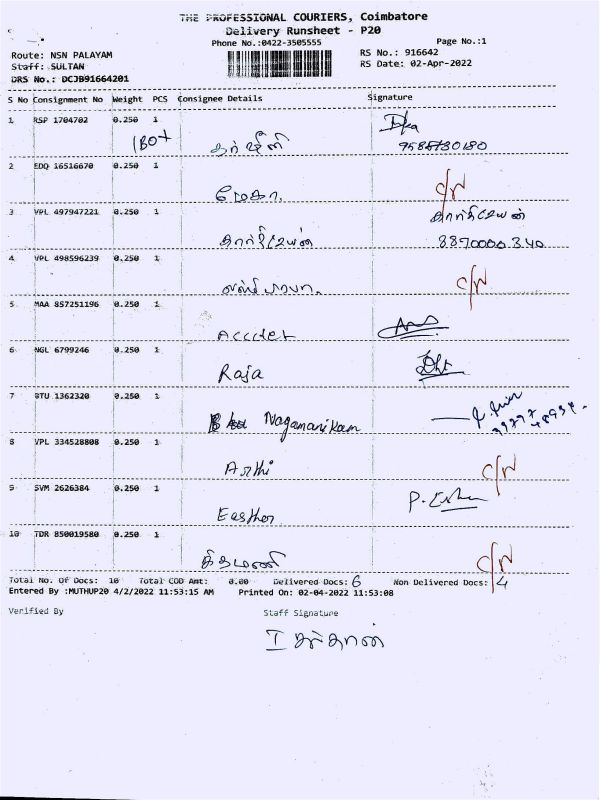 THE PROFESSIONAL COURIERS, Coimbatore
Delivery Runsheet - P20
Phone No.:0422-3505555 Page No.:1
Route: NSN PALAYAM RS No.: 916642
Staff: SULTAN RS Date: 02-Apr-2022
DRS No.: DCJB91664201
S No Consignment No Weight PCS Consignee Details Signature
1 RSP 1704702 0.250 1
1BOX
2 EDQ 16516670 0.250 1
மேகா. C/N
3 VPL 497947221 0.250 1 கார்த்திகேயன்
கார்த்திகேயன் 8870000340
4 VPL 498596239 0.250 1
C/N
5 MAA 857251196 0.250 1
6 NGL 6799246 0.250 1
Raja
7 BTU 1362320 0.250 1
Nagamanikam
8 VPL 334528808 0.250 1
Arthi C/N
9 SVM 2626384 0.250 1
Easther
10 TDR 850019580 0.250 1
C/N
Total No. Of Docs: 10 Total COD Amt: 0.00 Delivered Docs: 6 Non Delivered Docs: 4
Entered By :MUTHUP20 4/2/2022 11:53:15 AM Printed On: 02-04-2022 11:53:08
Verified By Staff Signature